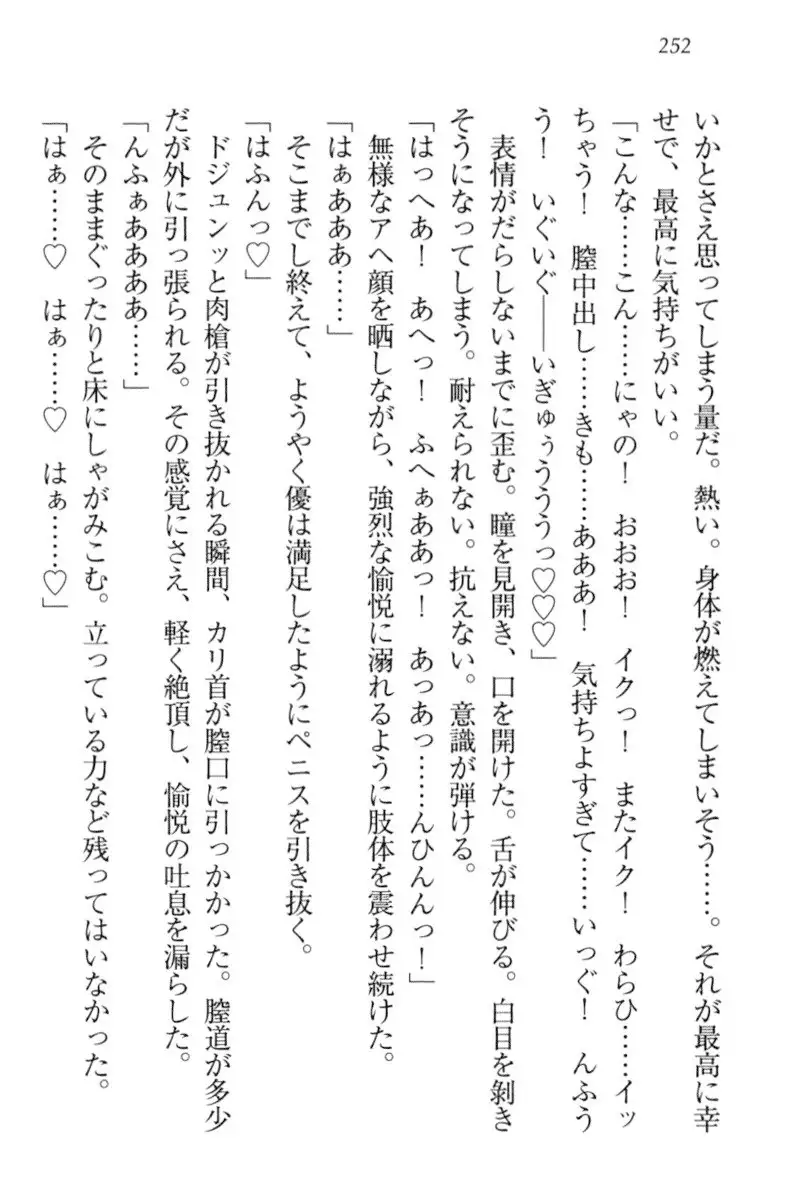 252
いかとさえ思ってしまう量だ。熱い。身体が燃えてしまいそう……。それが最高に幸
せで、最高に気持ちがいい。
「こんな……こん……にゃの！　おおお！　イクっ！　またイク！　わらひ……イッ
ちゃう！　膣中出し……きも……あああ！　気持ちよすぎて……いっぐ！　んふう
う！　いぐいぐ――いぎゅぅうううっ♡♡♡」
表情がだらしないまでに歪む。瞳を見開き、口を開けた。舌が伸びる。白目を剝き
そうになってしまう。耐えられない。抗えない。意識が弾ける。
「はっへあ！　あへっ！　ふへぁああっ！　あっあっ……んひんんっ！」
無様なアヘ顔を晒しながら、強烈な愉悦に溺れるように肢体を震わせ続けた。
「はぁあああ……」
そこまでし終えて、ようやく優は満足したようにペニスを引き抜く。
「はふんっ♡」
ドジュンッと肉槍が引き抜かれる瞬間、カリ首が膣口に引っかかった。膣道が多少
だが外に引っ張られる。その感覚にさえ、軽く絶頂し、愉悦の吐息を漏らした。
「んふぁああああ……」
そのままぐったりと床にしゃがみこむ。立っている力など残ってはいなかった。
「はぁ……♡　はぁ……♡　はぁ……♡」